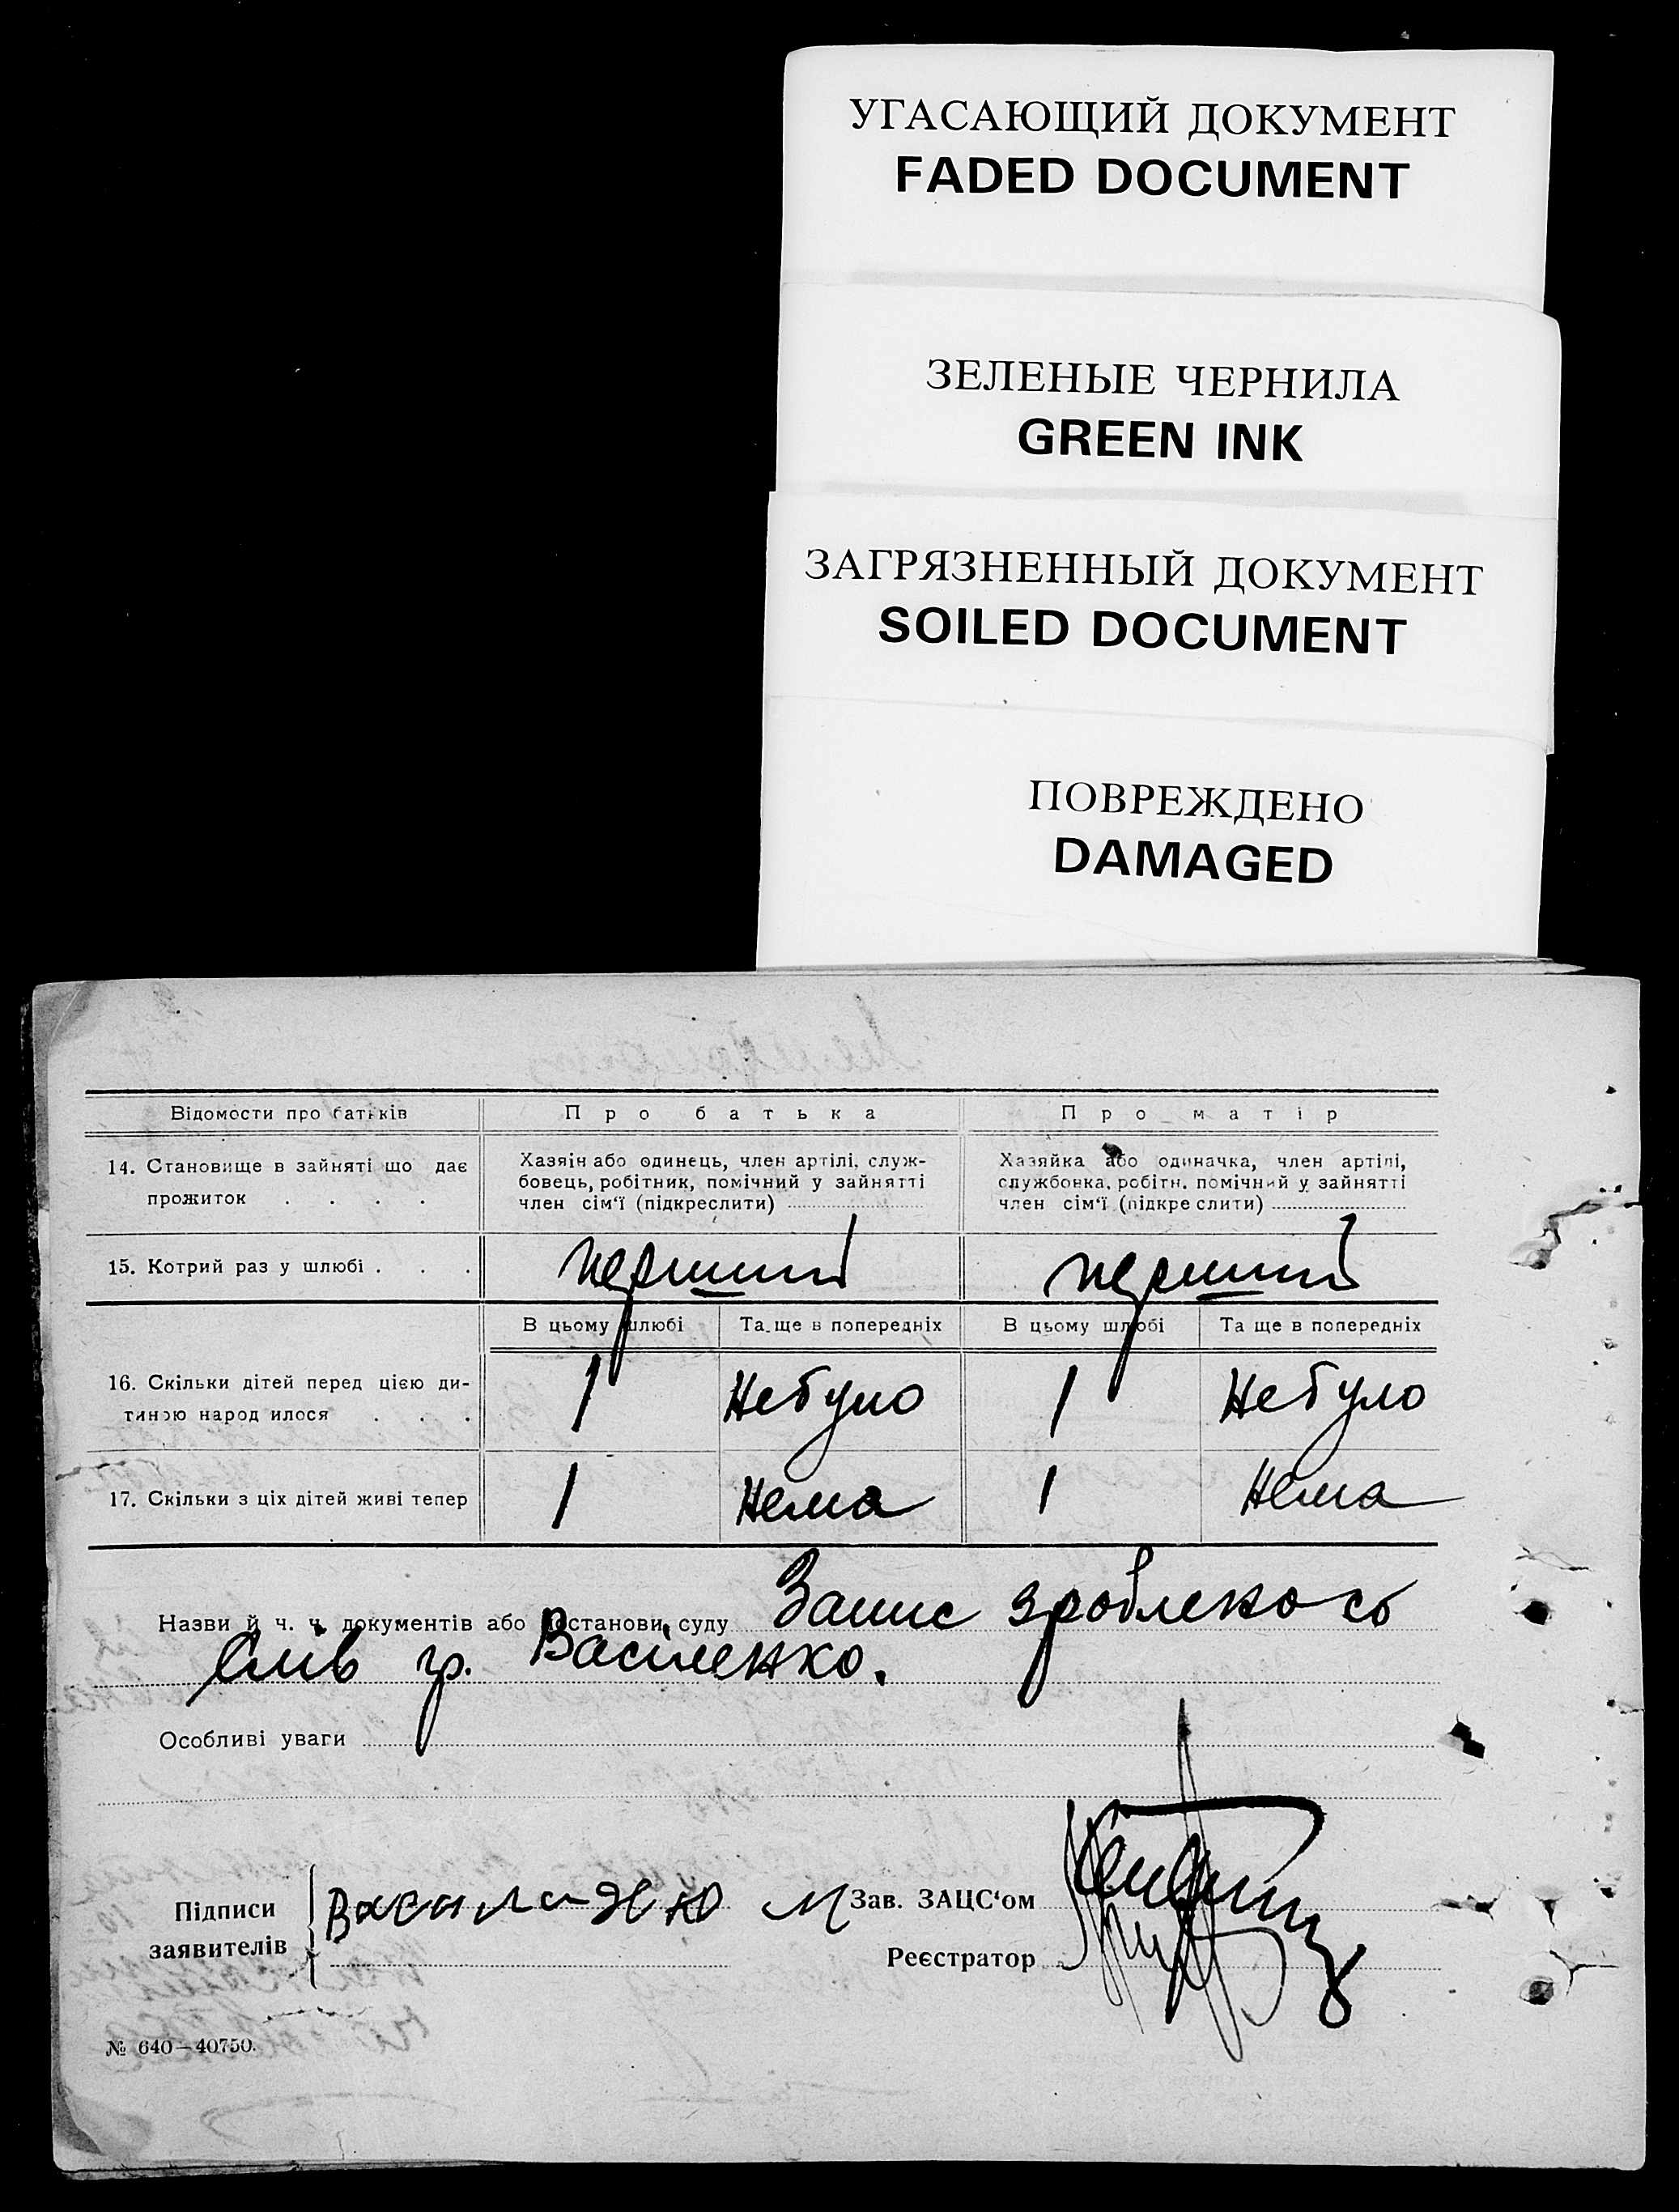 УГАСАЮЩИЙ ДОКУМЕНТ
FADED DOCUMENT
ЗЕЛЕНЫЕ ЧЕРНИЛА
GREEN INK
ЗАГРЯЗНЕННЫЙ ДОКУМЕНТ
SOILED DOCUMENT
ПОВРЕЖДЕНО
DAMAGED
Відомости про батьків Про батька Про матір
14. Становище в зайняті що дає прожиток . . . .
Хазяїн або одинець, член артілі, служ-
бовець, робітник, помічний у зайнятті
член сім'ї (підкреслити)
Хазяйка або одиначка, член артілі,
службовка, робітн. помічний у зайнятті
член сім'ї (підкреслити)
15. Котрий раз у шлюбі . . . перший перший
В цьому шлюбі Та ще в попередніх В цьому шлюбі Та ще в попередніх
16. Скільки дітей перед цією ди-
тиною народилося . . . 1 Небуло 1 Небуло
17. Скільки з ціх дітей живі тепер 1 Нема 1 Нема
Назви й ч. ч. документів або постанови суду Запис зроблено со
слів гр. Василенко.
Особливі уваги
Підписи
заявителів
Зав. ЗАЦС'ом
Реєстратор
№ 640—40750.